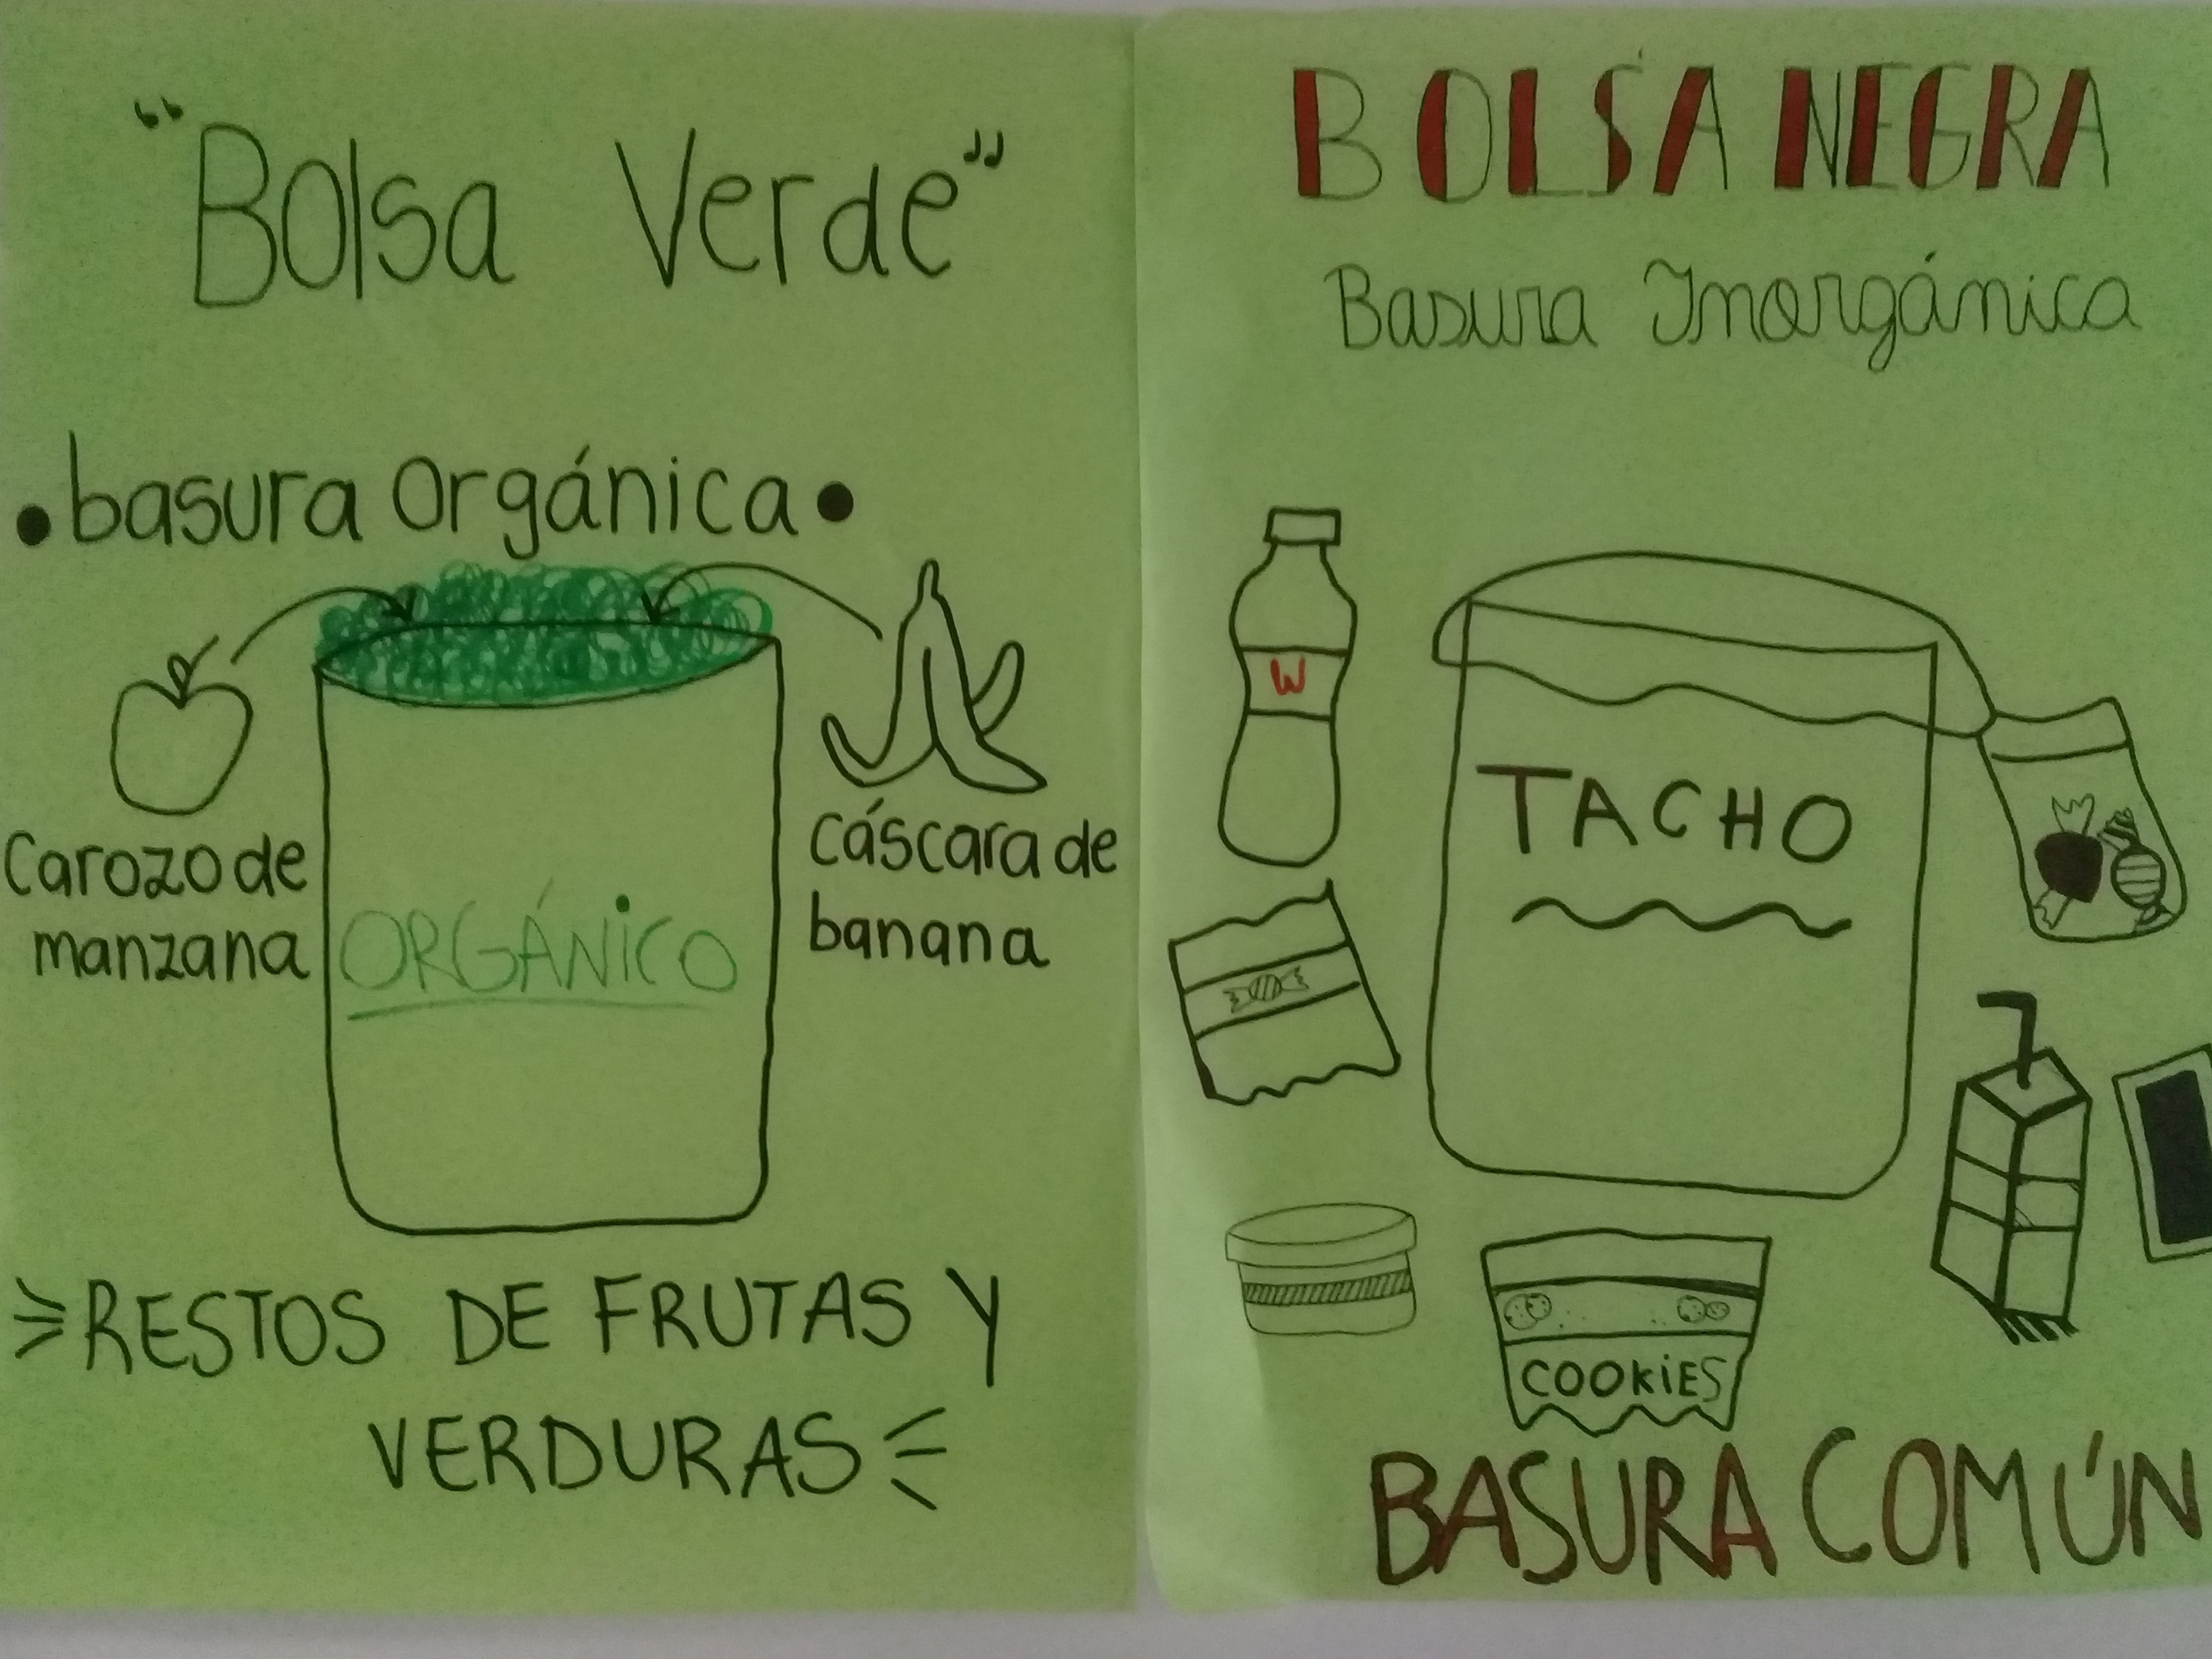 "Bolsa Verde"
• basura orgánica •
Carozo de
manzana
cáscara de
banana
ORGÁNiCO
RESTOS DE FRUTAS Y
VERDURAS
BOLSA NEGRA
Basura Inorgánica
W
TACHO
COOKiES
BASURA COMÚN